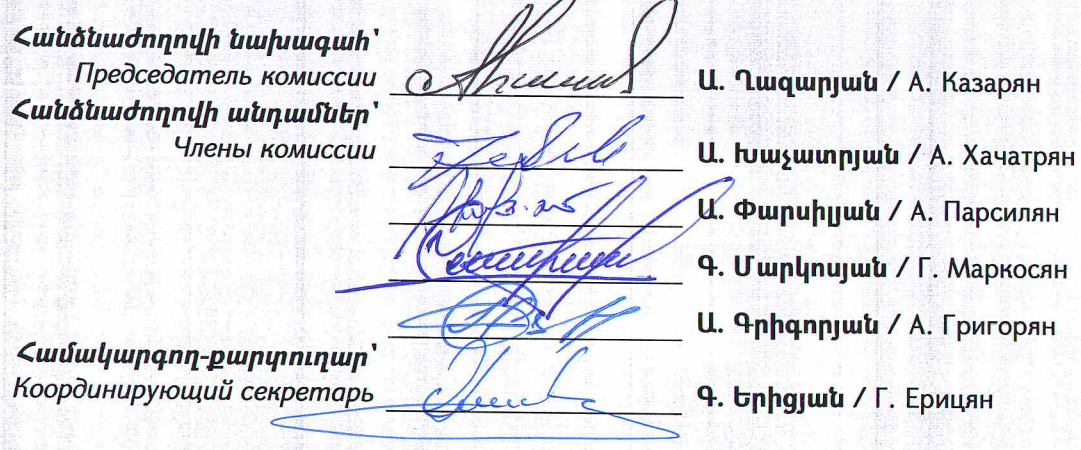 Հանձնաժողովի նախագահ՝
Председатель комиссии
Ա. Ղազարյան / А. Казарян
Հանձնաժողովի անդամներ՝
Члены комиссии
Ա. Խաչատրյան / А. Хачатрян
Ա. Փարսիլյան / А. Парсилян
Գ. Մարկոսյան / Г. Маркосян
Ա. Գրիգորյան / А. Григорян
Համակարգող-քարտուղար՝
Координирующий секретарь
Գ. Երիցյան / Г. Ерицян